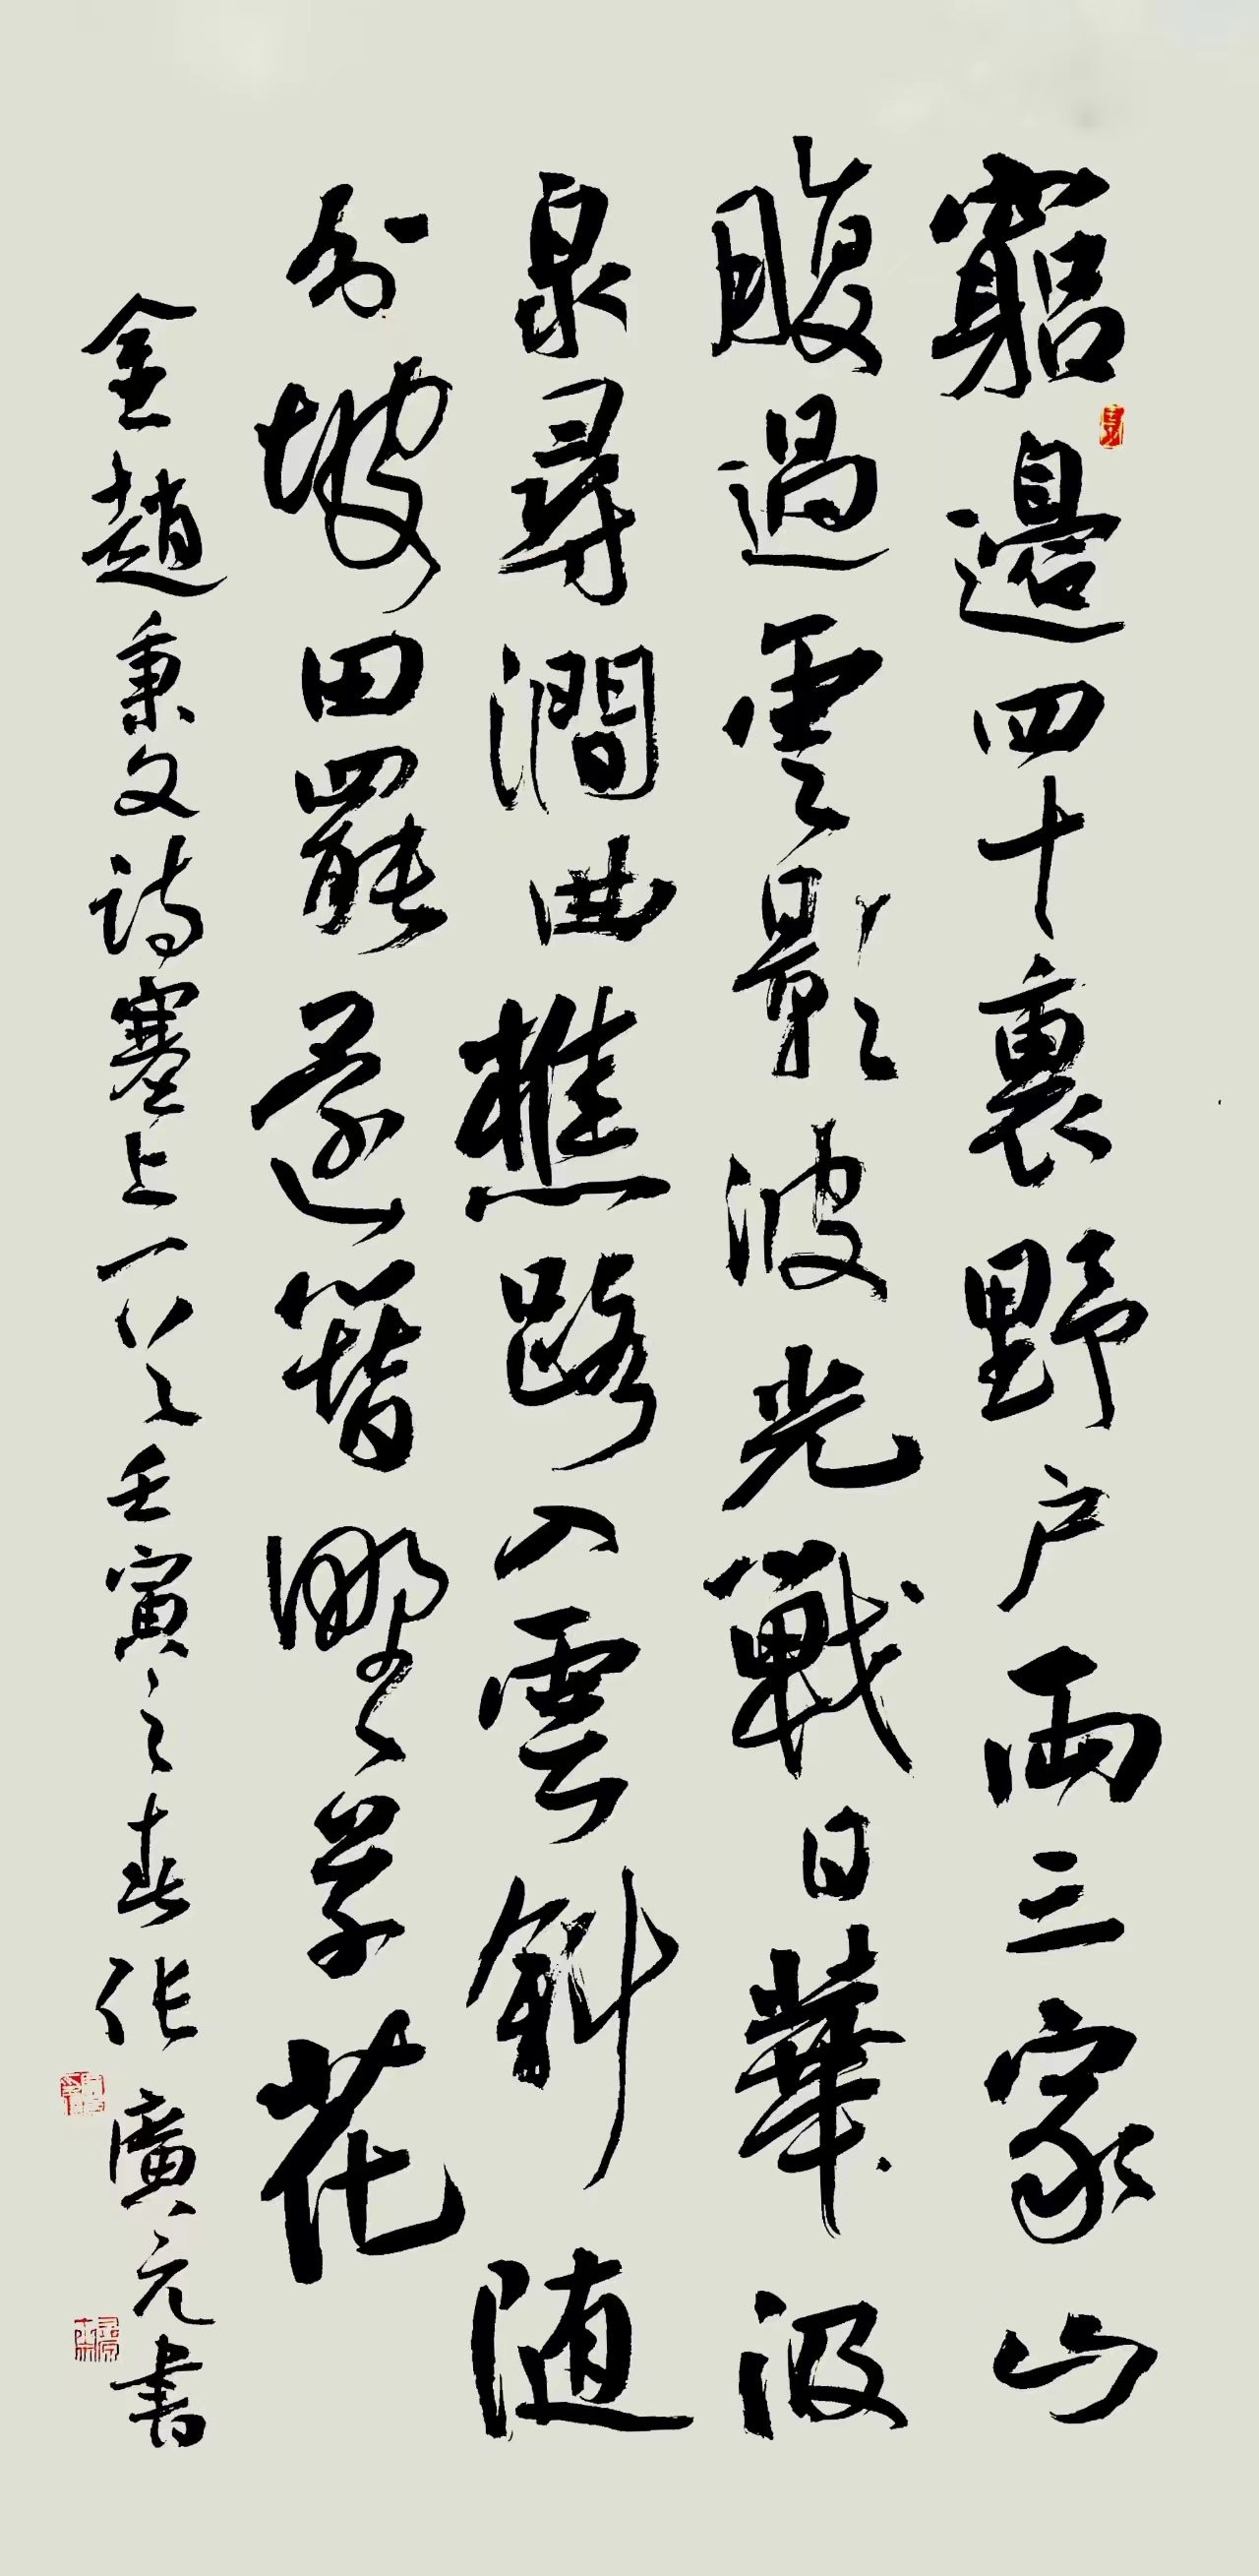 窮邊四十裏野户兩三家山
腹過雲影波光戰日華汲
泉尋澗曲樵路入雲斜随
坡田罷還簪野草花
金趙秉文詩塞上一首壬寅之春張廣元書